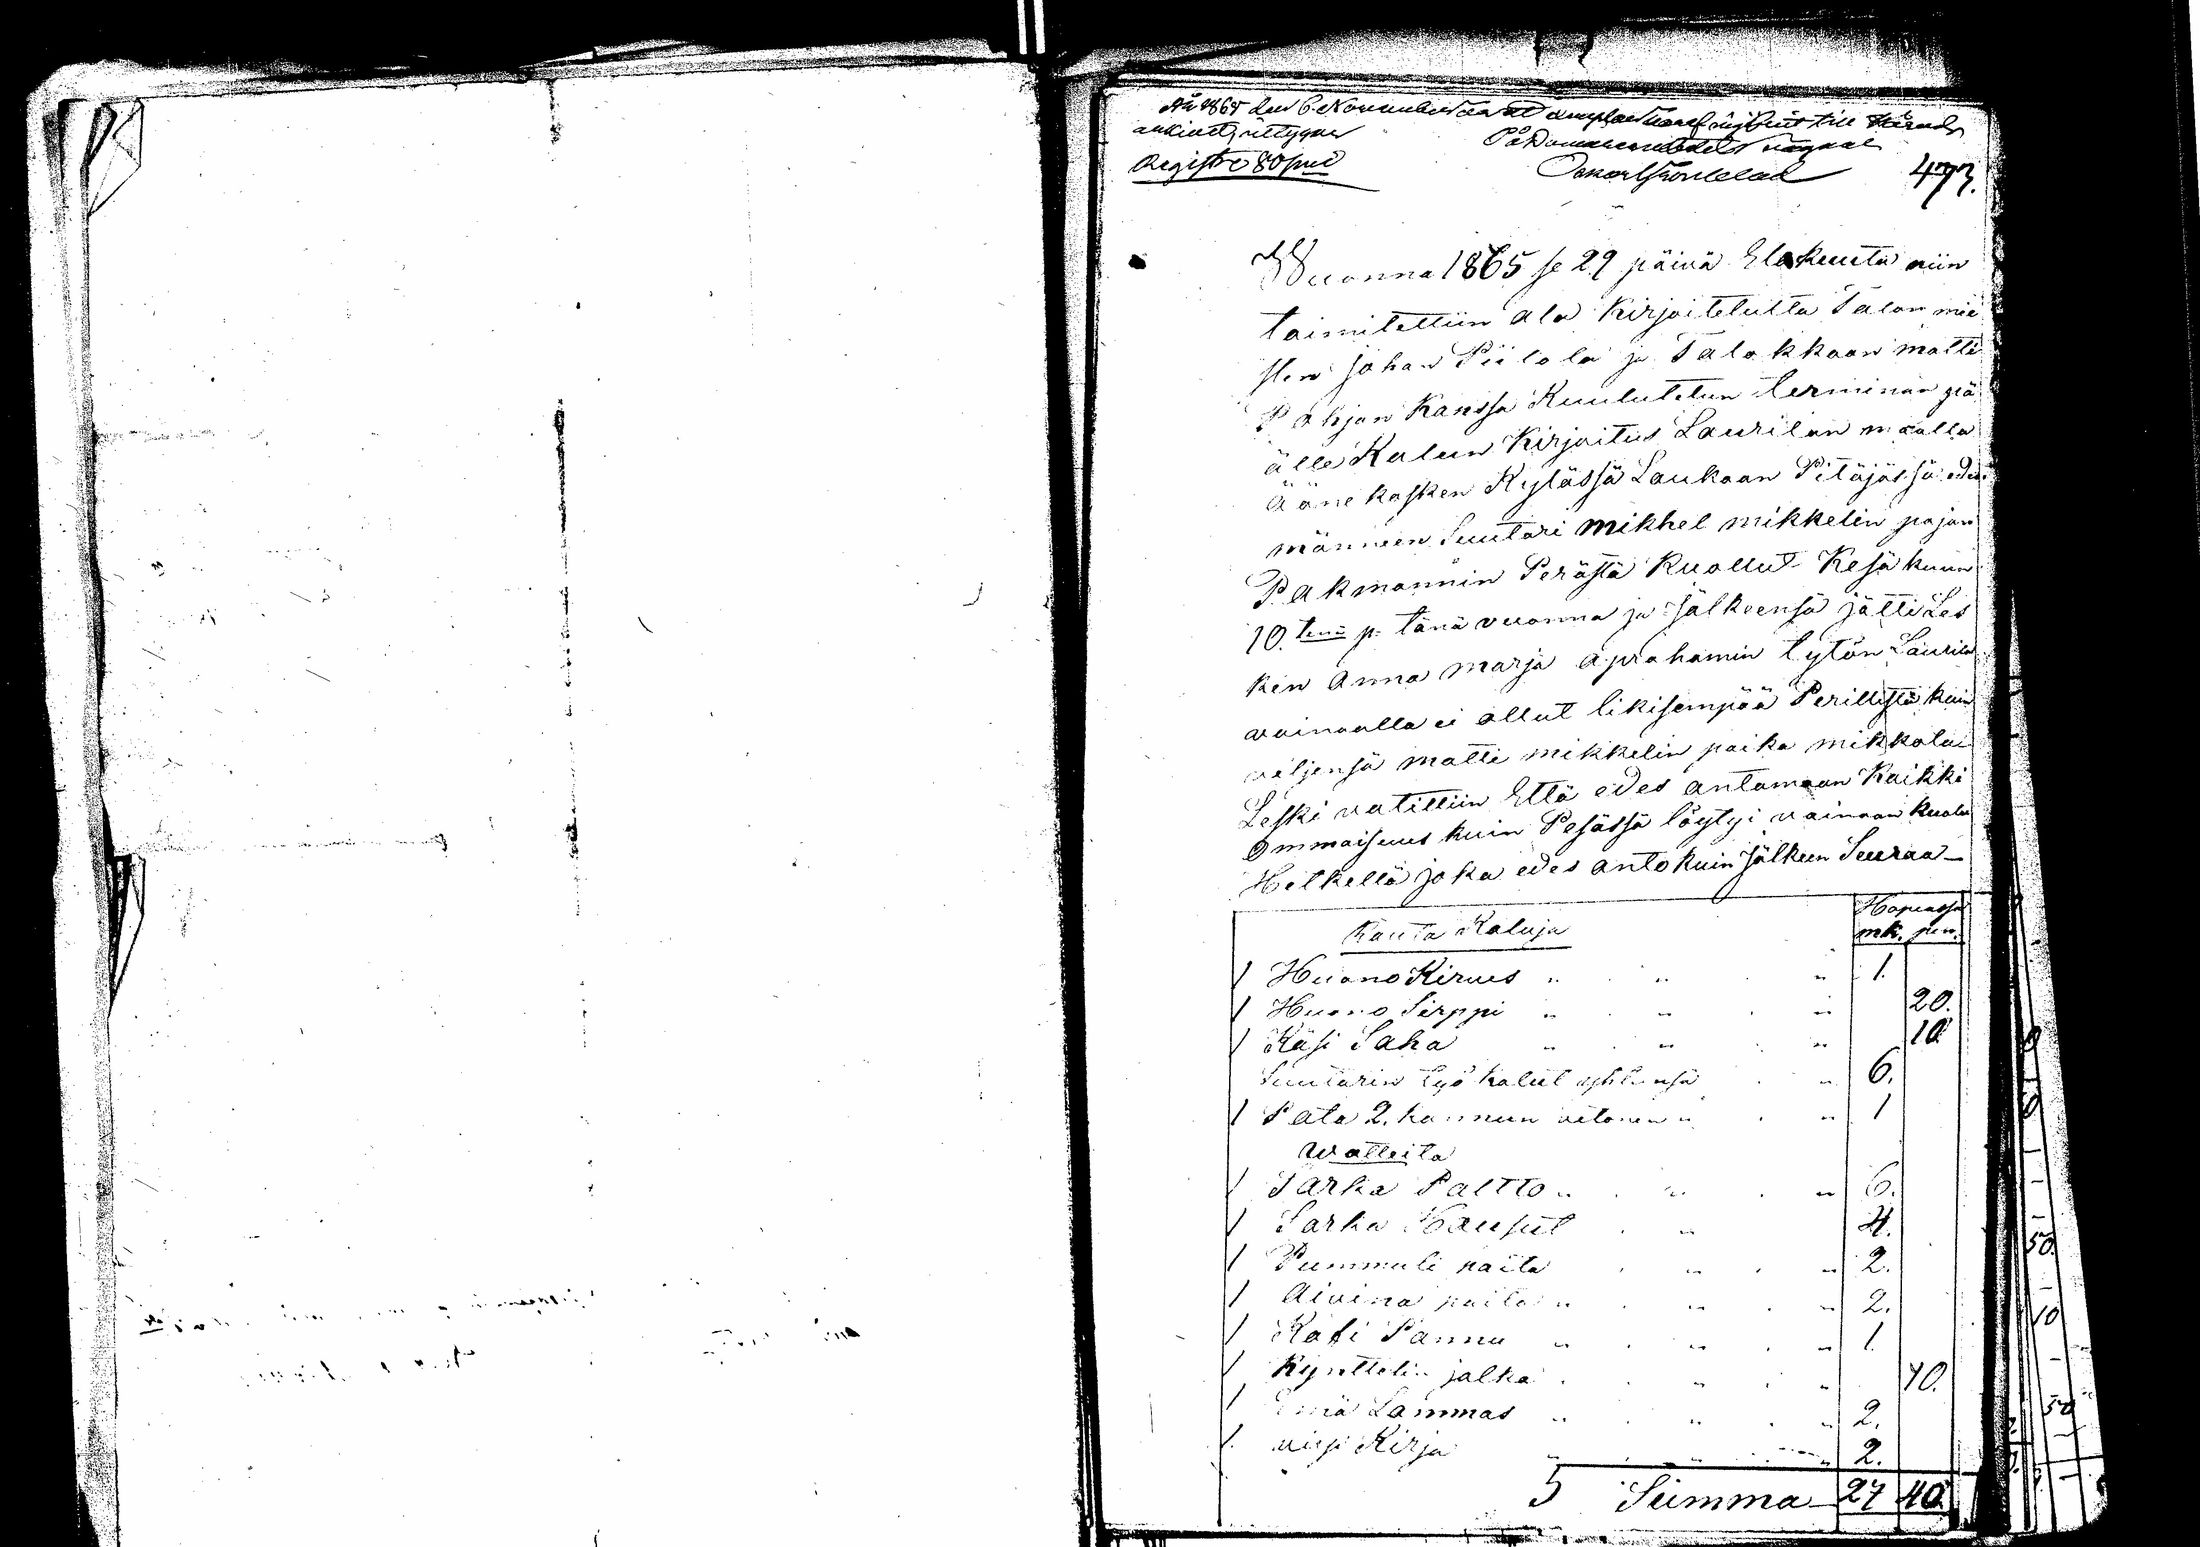 År 1865 den 6 November är ett exemplar häraf ingifvit till Härads
arkivet, betygar
På Domareembetets vägnar
Registr. 80 pni
473.
Wuonna 1865 se 29 päivä Elokuuta niin
toimitettiin ala Kirjoitetulta Talon mie
sten Johan Piilola ja Talokkaan matti
Pohjan Kanssa Kuulutetun terminän pä
älle Kalun Kirjoitus Laurilan maalla
Äänekosken Kylässä Laukaan Pitäjässä edes
männeen Suutari Mikhel mikkelin pojan
Pakmannin Perästä Kuollut Kesäkuun
10. tenä p. tänä vuonna ja jälkeensä jätti Les
ken Anna marja aprahamin tytön Laurila
vainaalla ei ollut likisempää Perillistä kuin
veljensä matti mikkelin poika mikkola
Leski vatittiin Että edes antamaan Kaikki
Ommaisuus kuin Pesässä löytyi vainaan kuolu
Hetkellä joka edes anto kuin jälkeen Seuraa
Hopeassa
Rauta Kaluja mk. pen.
1 Huono Kirves " " " 1.
1 Huono Sirppi " " " 20.
1 Käsi Saha " " " 10
Suutarin työ kalut yhteensä " 6.
1 Pata 2. kannun vetonen " " 1
Watteita
1 Sarka Paltto " " " 6.
1 Sarka Housut " 4.
1 Pummuli paita " " 2.
1 Aivina paita " " " 2.
1 Kafi Pannu " " " 1.
1 Kynttelin jalka " " 10.
1 Emä Lammas " " " 2.
1. virsi Kirja " " " 2.
5 Summa 27 40